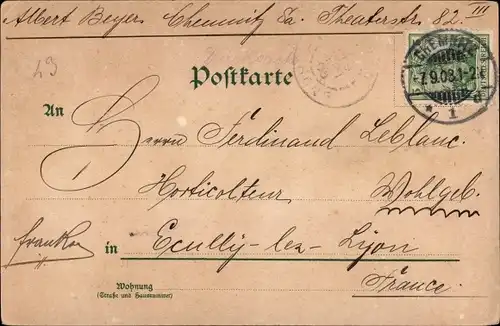 Albert Beyer, Chemnitz Sa. Theaterstr. 82. III
Postkarte
CHEMNITZ
7.9.03.1-2
* 1
49
An
Herrn Ferdinand Leblanc.
Horticolteur Wohlgeb.
frankο
in Ecully-lez-Lyon
France.
Wohnung
(Straße und Hausnummer)